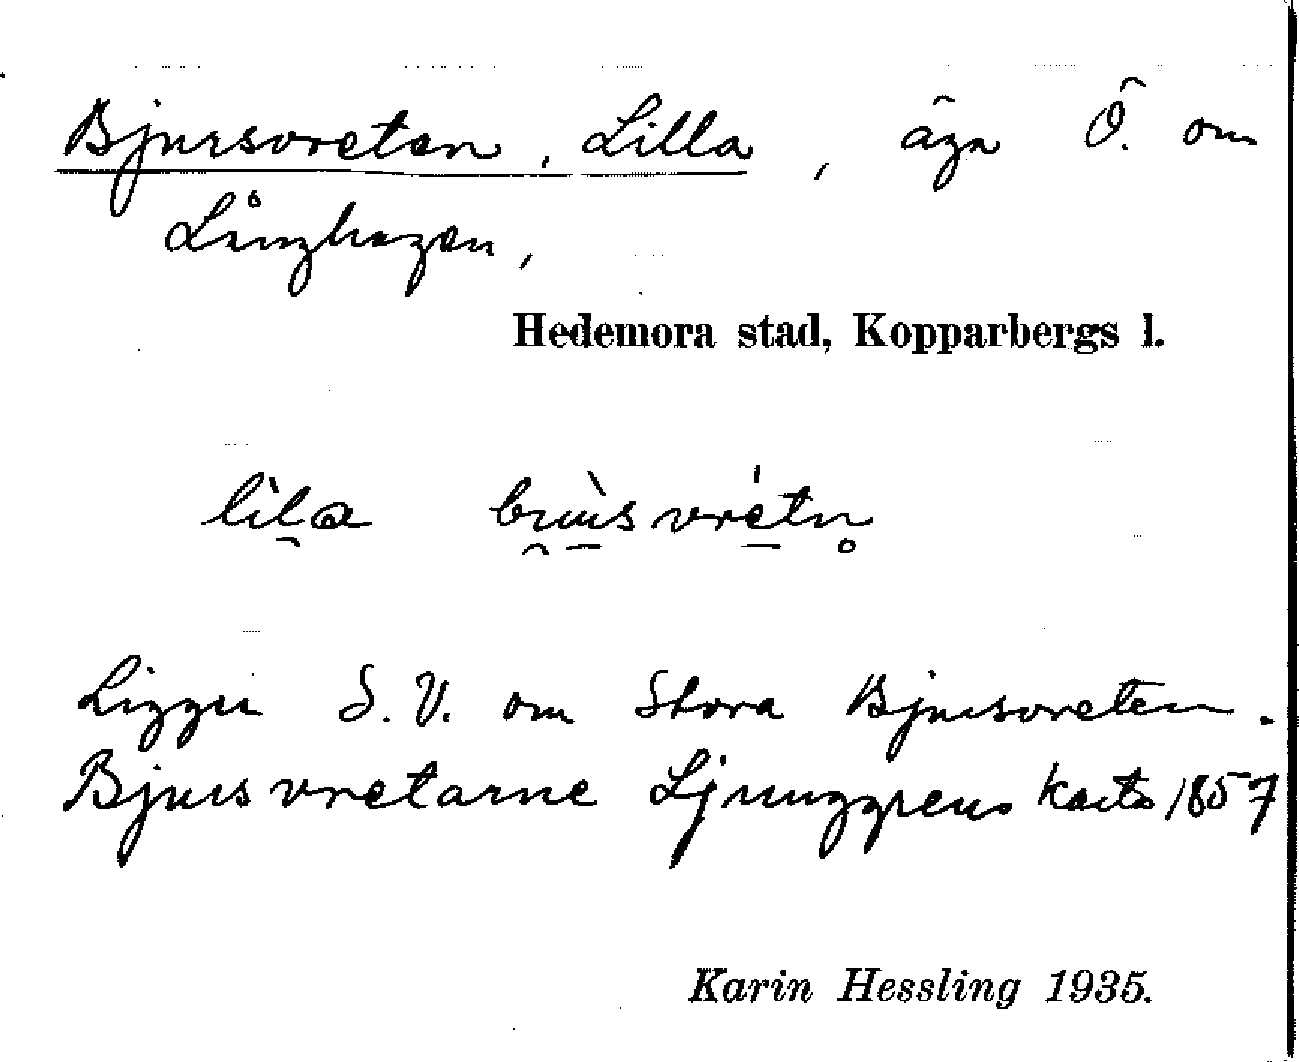 Bjursvreten, Lilla, äga Ö. om
Långhagen,
Hedemora stad, Kopparbergs l.
Ligger S.V. om Stora Bjursvreten.
Bjursvretarne Ljunggrens karta 1857
Karin Hessling 1935.